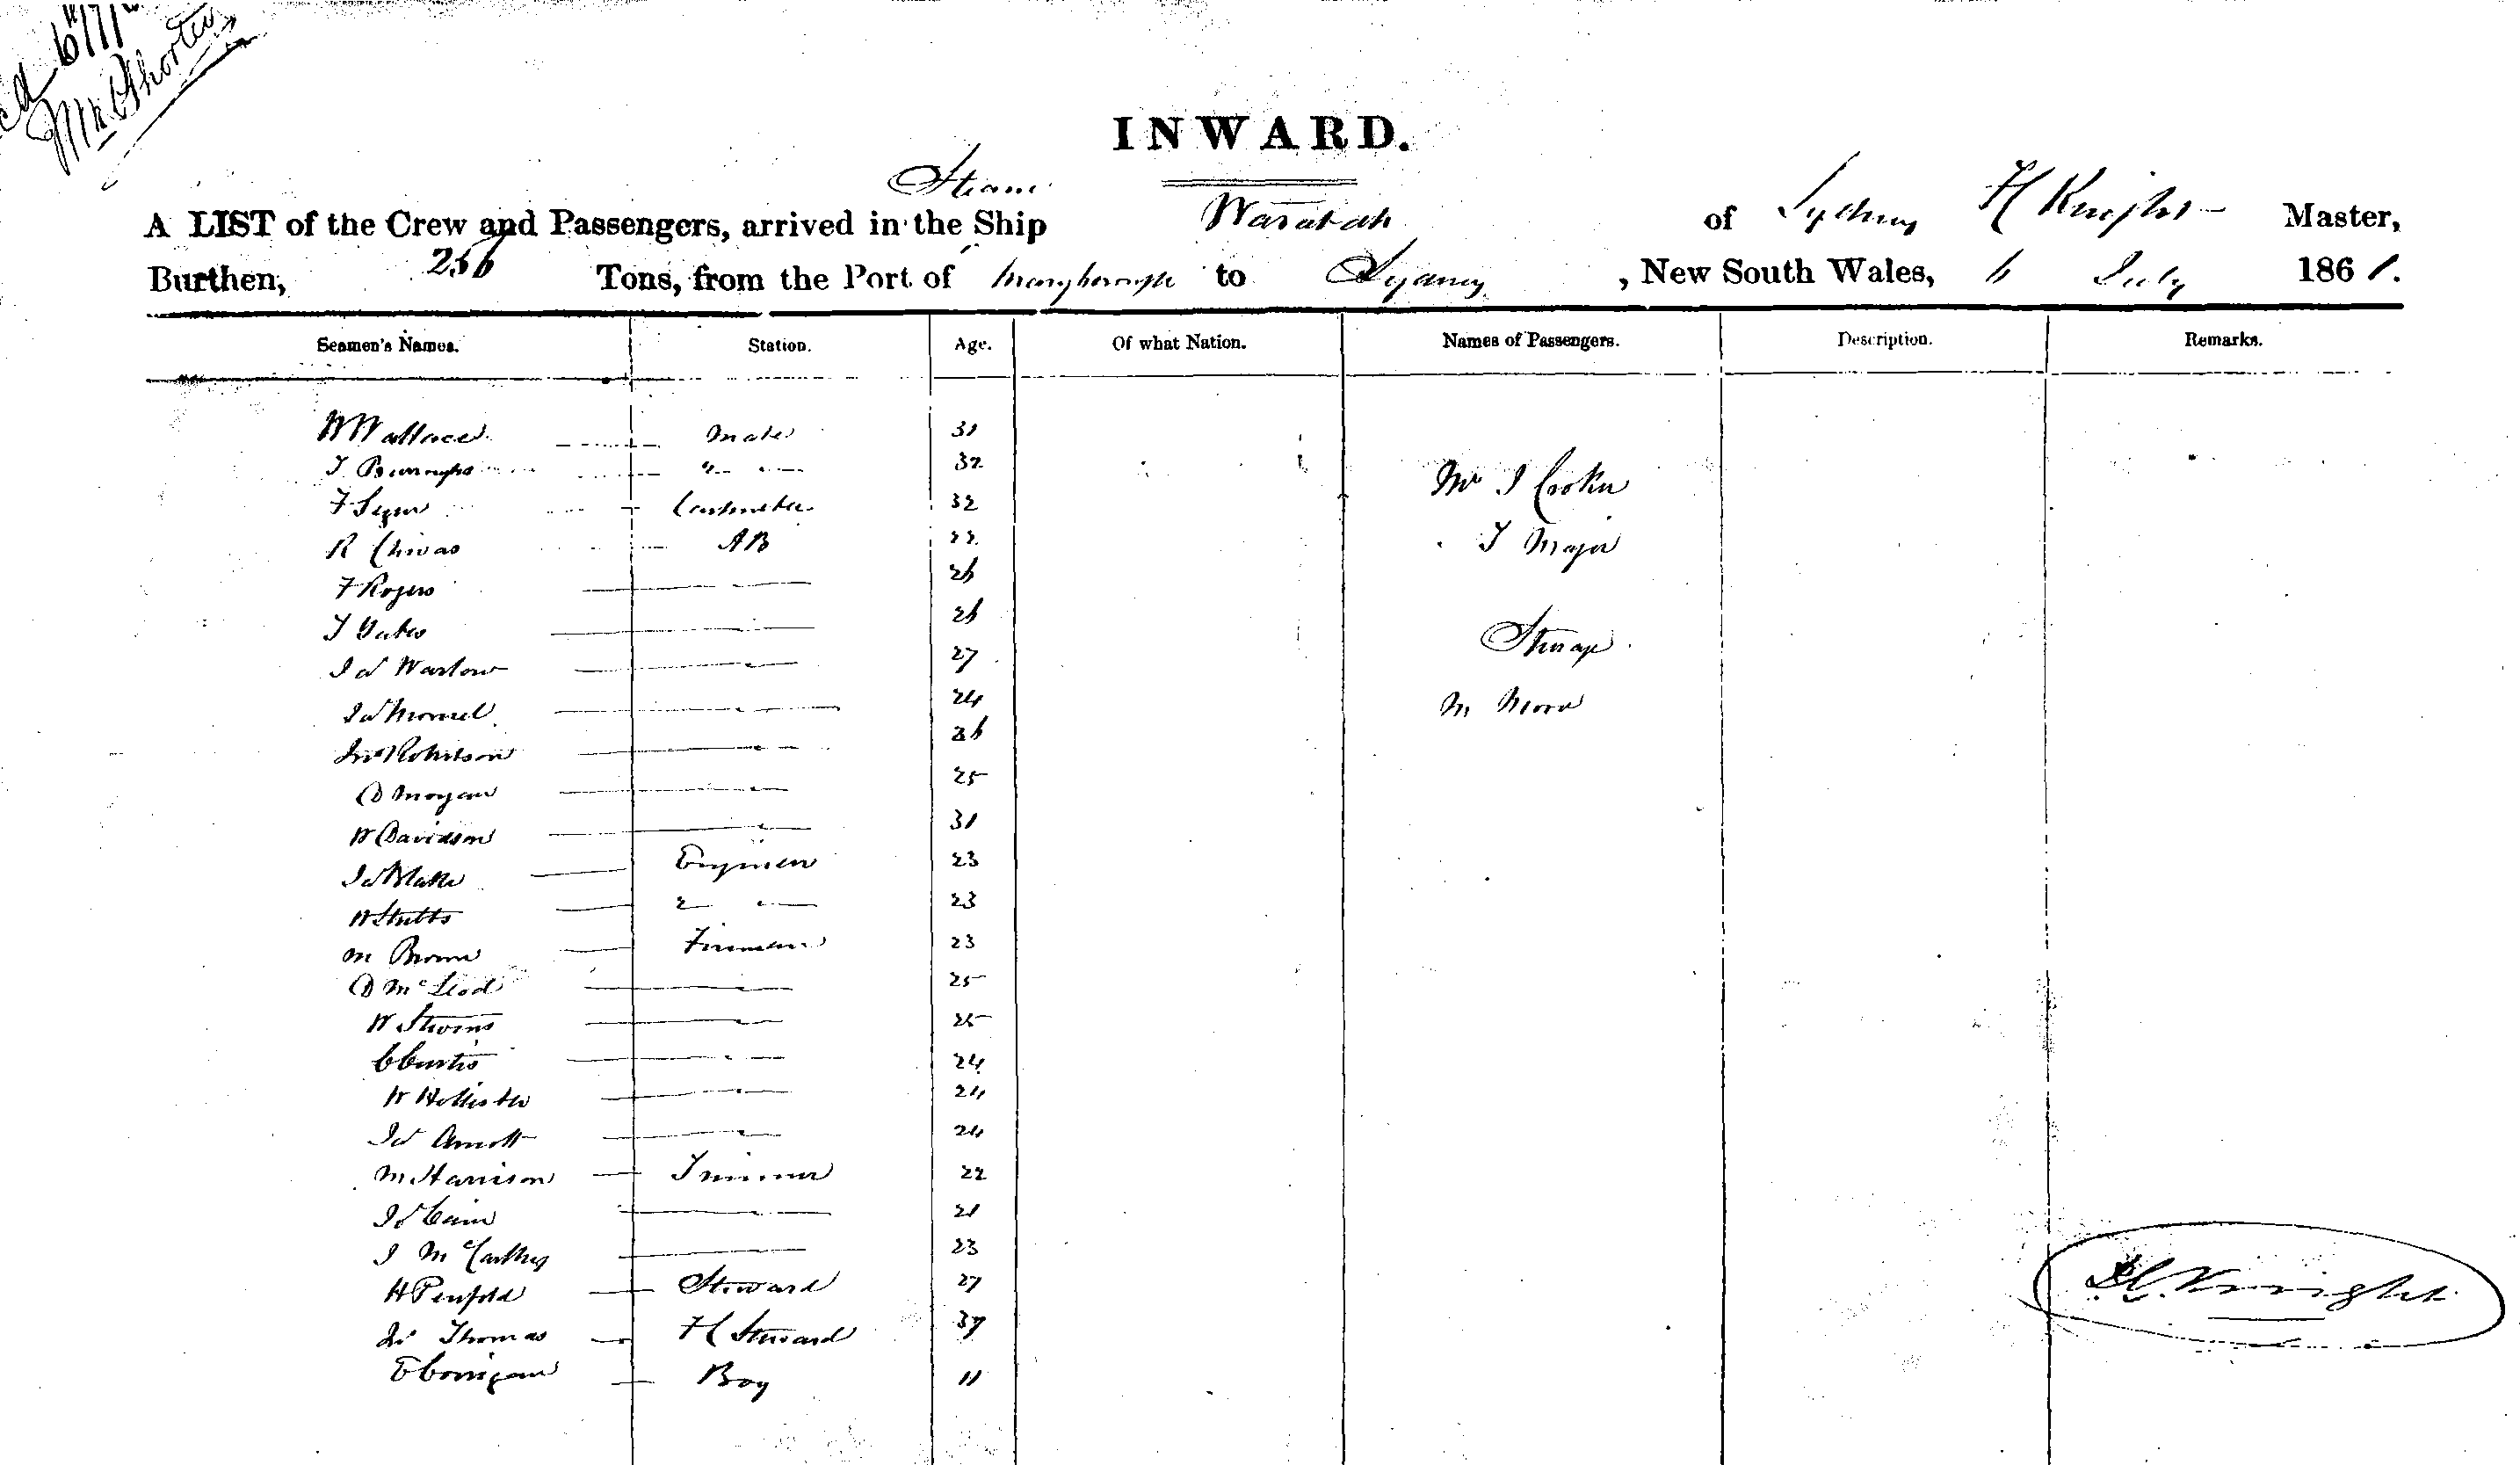 INWARD.
Steam
A LIST of the Crew and Passengers, arrived in the Ship Waratah of Sydney H Knight Master,
Burthen, 256 Tons, from the Port of Maryborough to Sydney, New South Wales, 6 July 1861.
Seamen's Names. Station. Age. Of what Nation. Names of Passengers. Description. Remarks.
W Wallace Mate 31
T Burroughs " 32
Mr J Cooker
F 32
R Chivas AB 22
T Major
F Rogers 26
T Yates 26
Steerage
Jas Warlow 27
M Moore
Jas 24
Jno Robertson 26
D Morgan 25
W Davidson 31
Jas Blake Engineer 23
W Stubbs " 23
M Brown Fireman 23
D McLeod 25
W 25
C Curtis 24
W Hollister 24
Jas Arnott 24
M Harrison Trimmer 22
Js Cain 21
J McCarthy 23
H Penfold Steward 27
H. Knight
Thomas Steward 37
E Corrigan Boy 11